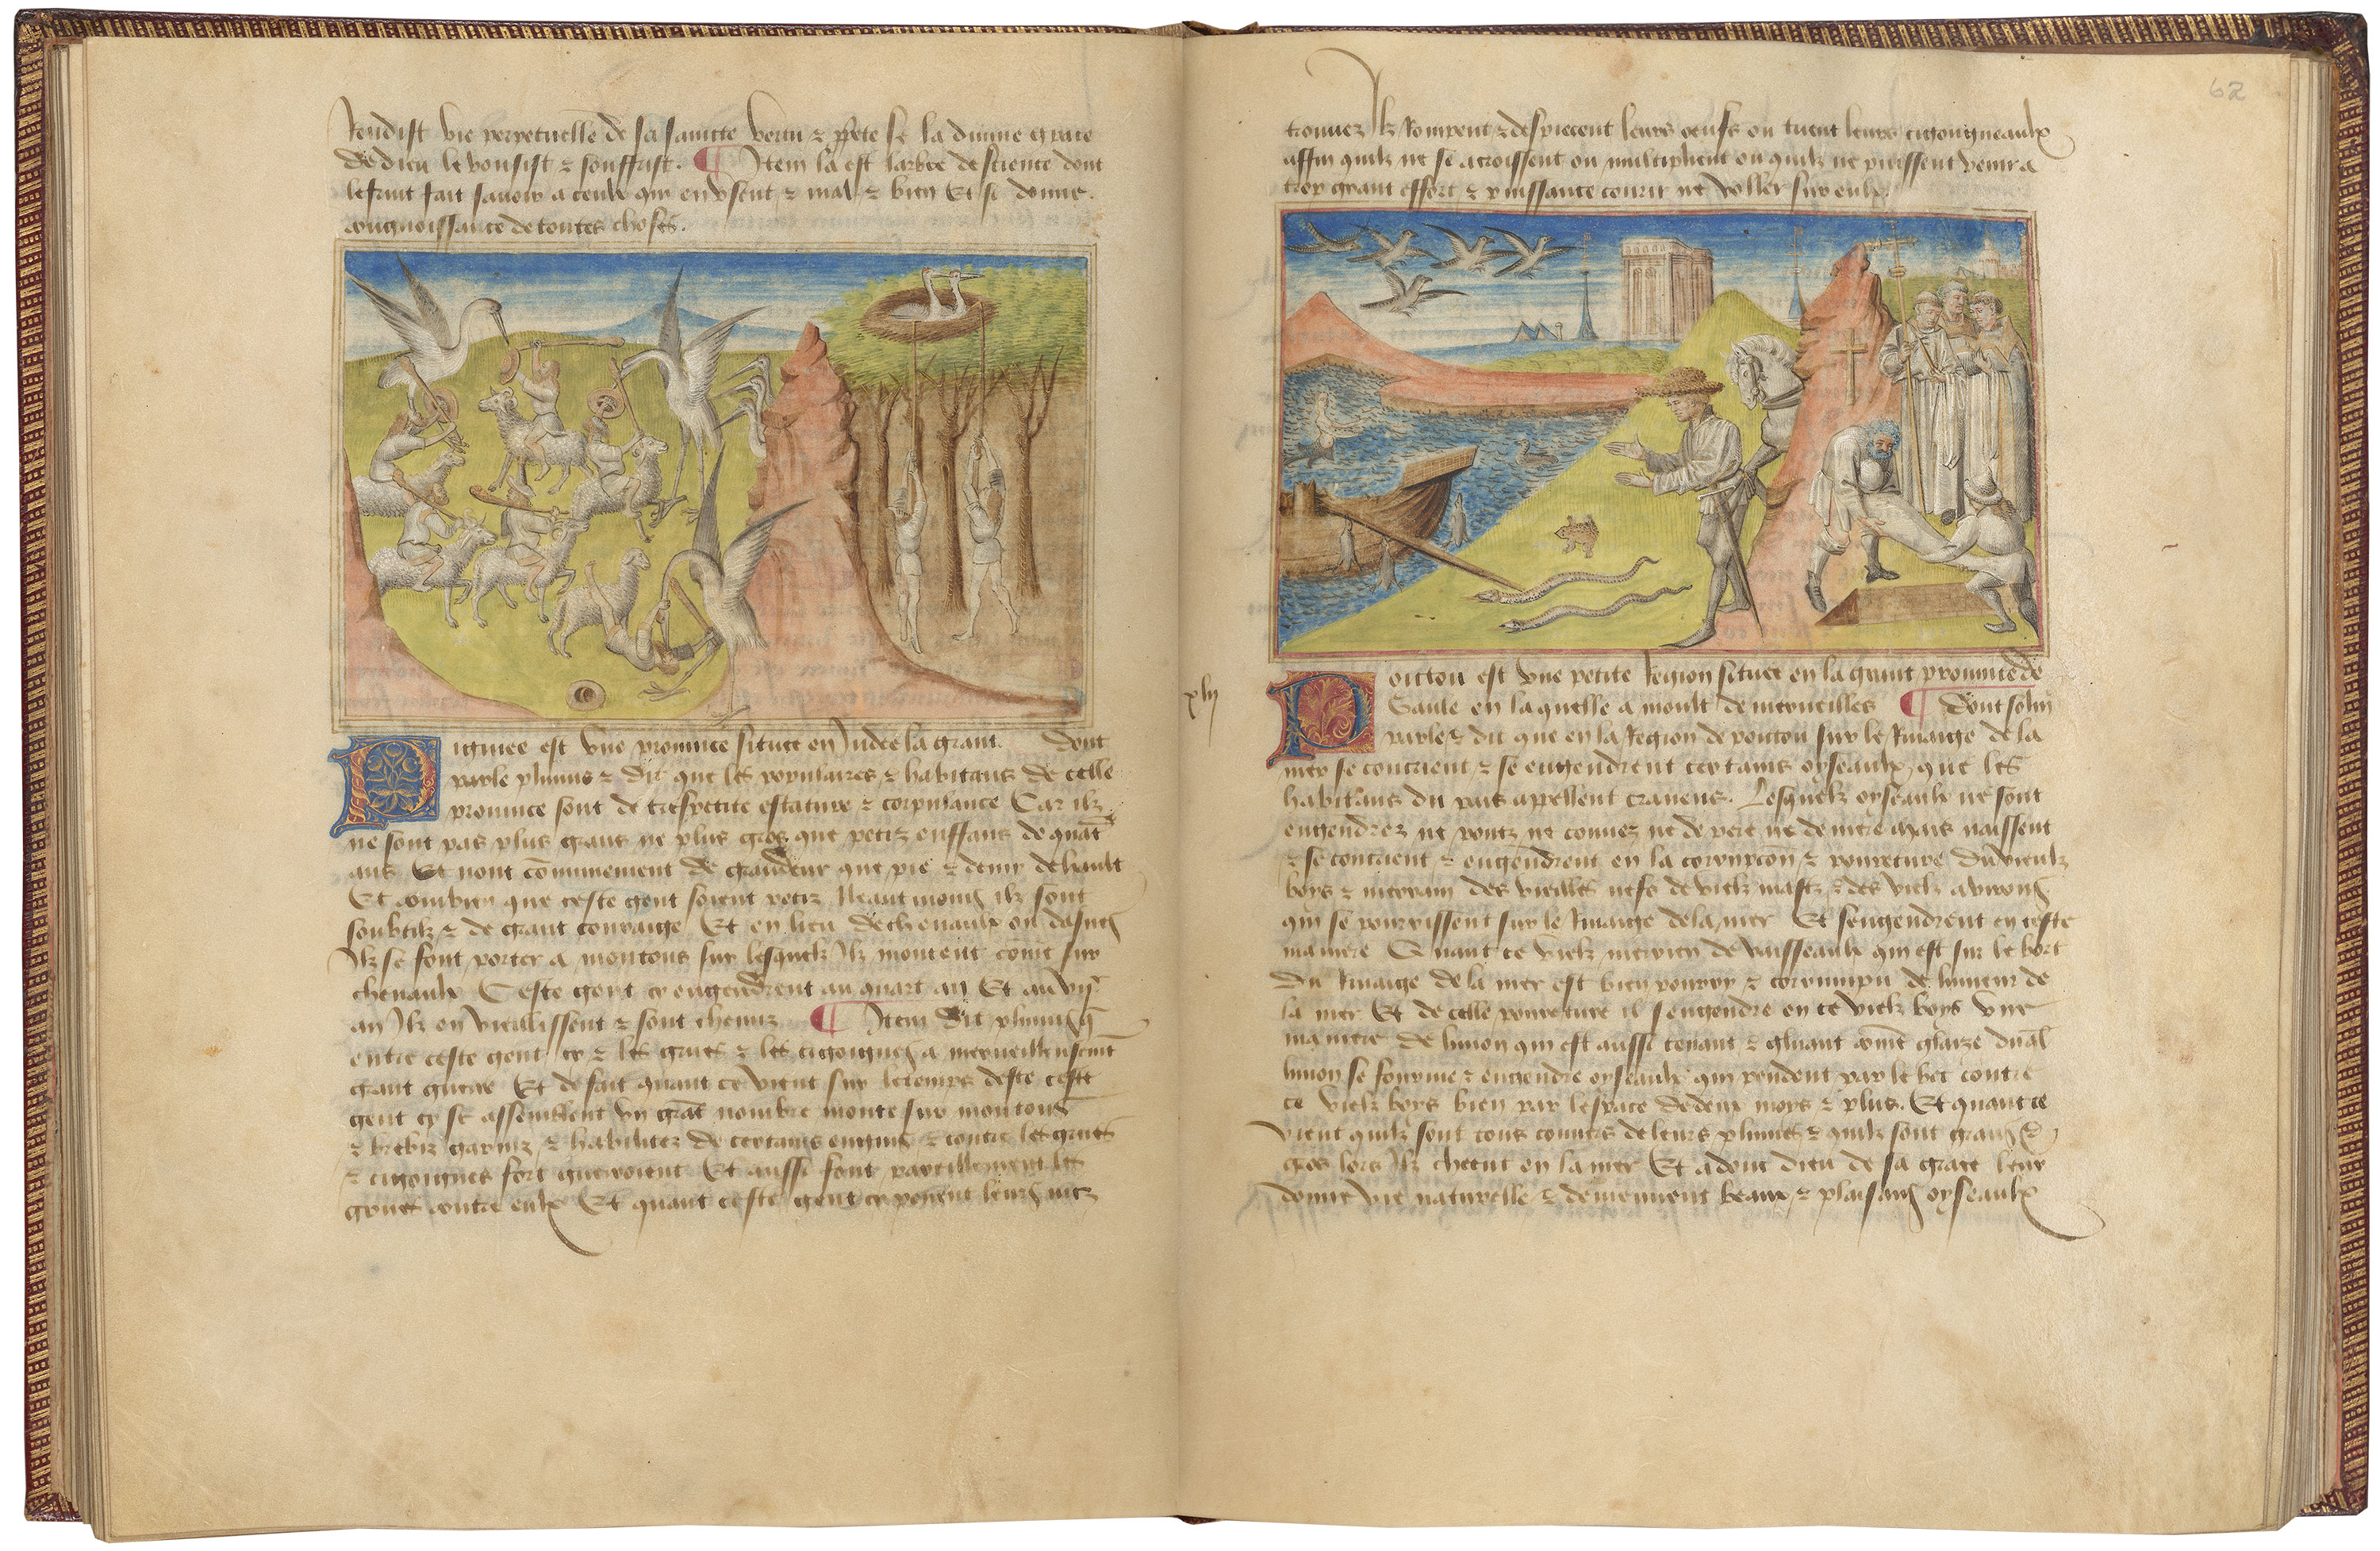 Rendist vie perpetuelle de sa saincte vertu & se la divine grace
de dieu le vousist & souffrist. ¶ Item la est larbre de science dont
le fruit fait savoir a ceulx qui en usent & mal & bien Et si donne
congnoissance de toutes choses.
Pigmee est une province situee en Indee la grant. Dont
parle plinius & dit que les populaires & habitans de celle
province sont de trespetite estature & corpulance Car ilz
ne sont pas plus grans ne plus gros que petiz enffans de quat
ans Et nont cōmunement de grandeur que pie & demy de hault
Et combien que ceste gent soient petiz Neantmoins ilz sont
soubtilz & de grant couraige Et en lieu de chevaulx ou dasnes
Ilz se font porter a moutons sur lesquelz Ilz montent come sur
chevaulx Ceste gent cy engendrent au quart an Et au vije
an Ilz enviellissent & sont chenuz ¶ Item dit plinius q̄
entre ceste gent cy & les grues & les cigoignes a merveilleusemt
grant guerre Et de fait quant ce vient sur le temps deste ceste
gent cy se assemblent un grāt nombre monte sur moutons
& brebiz garniz & habillitez de certains engins & contre les grues
& cigoignes fort guerroient Et aussi font pareillement les
grues contre eulx Et quant ceste gent cy peuent leurs nitz
trouvez Ilz Rompent & despiecent leurs oeufs ou tuent leurs cigongneaulx
affin quilz ne se acroissent ou multiplient ou quilz ne puissent venir a
trop grant effort & puissance courir ne voller sur eulx.
xlij
62
Poictou est une petite Region situee en la grant province de
Gaule en laquelle a moult de merveilles ¶ Dont solin
parle & dit que en la Region de poictou sur le Rivaige de la
mer se concreent & se engendrent certains oyseaulx que les
habitans du pais apellent cravens. Lesquelz oyseaulx ne sont
engendrez ne pontz ne couvez ne de pere ne de mere mais naissent
& se concreent & engendrent en la corrupcōn & poureture du vieulx
boys & merrain des vieilles nefs de vielz mastz & des vielz avirons
qui se pourrissent sur le Rivaige de la mer Et sengendrent en ceste
maniere Quant ce vielz merrien de vaisseaulx qui est sur le bort
du Rivaige de la mer est bien pourry & corrumpu de lumeur de
la mer Et de celle poureture il sengendre en ce vielz boys une
maniere de lymon qui est aussi tenant & gluant cōme glaize duql
lymon se fourme & engendre oyseaulx qui pendent par le bec contre
ce vielz boys bien par lespace de deux moys & plus. Et quant ce
vient quilz sont tous couvers de leurs plumes & quilz sont grans &
gros lors Ilz cheent en la mer Et adonc dieu de sa grace leur
donne vie naturelle & deviennent beaux & plaisans oyseaulx